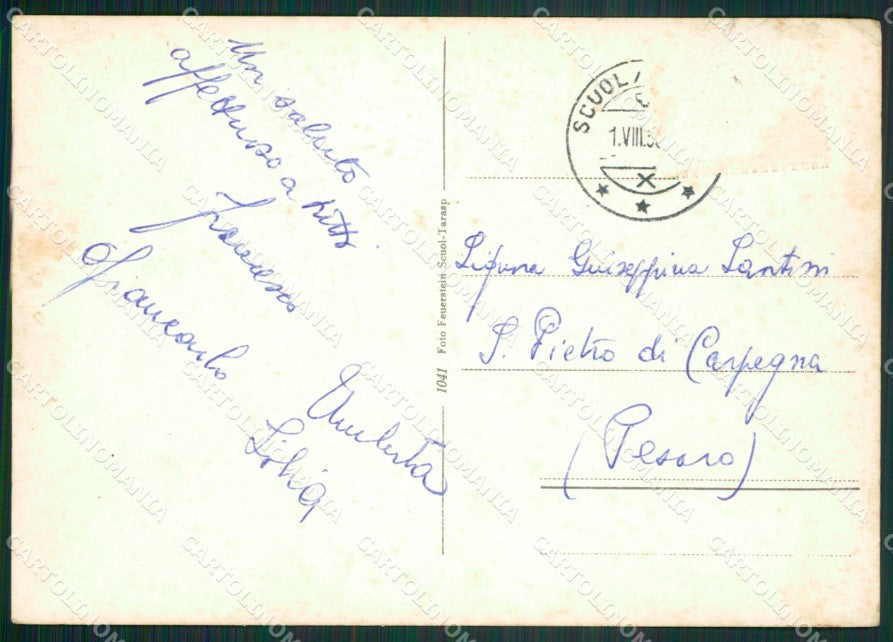 Un saluto
affettuoso a tutti
Francesco
Giancarlo
Umberta
Silvia
1041 Foto Feuerstein Scuol-Tarasp
SCUOL/
1.VIII.5
Signora Giuseppina Santini
S. Pietro di Carpegna
(Pesaro)
CARTOLINOMANIA